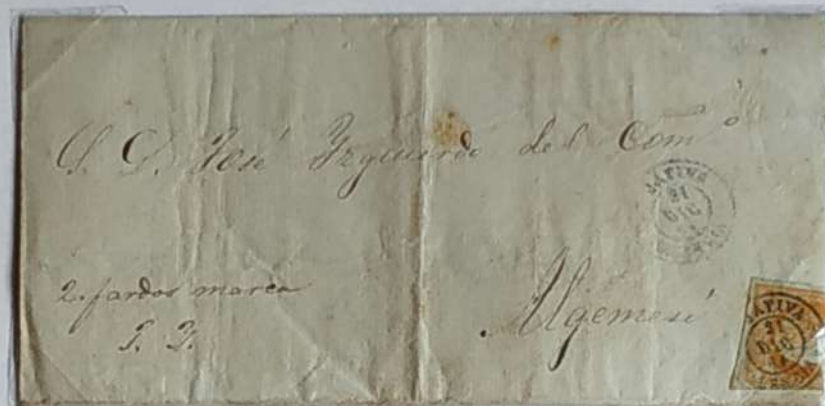 S. D. José Yzquierdo del Com.º
JATIVA
21
DIC
2. fardos marca
J. Y.
Algemesí
JATIVA
21
DIC